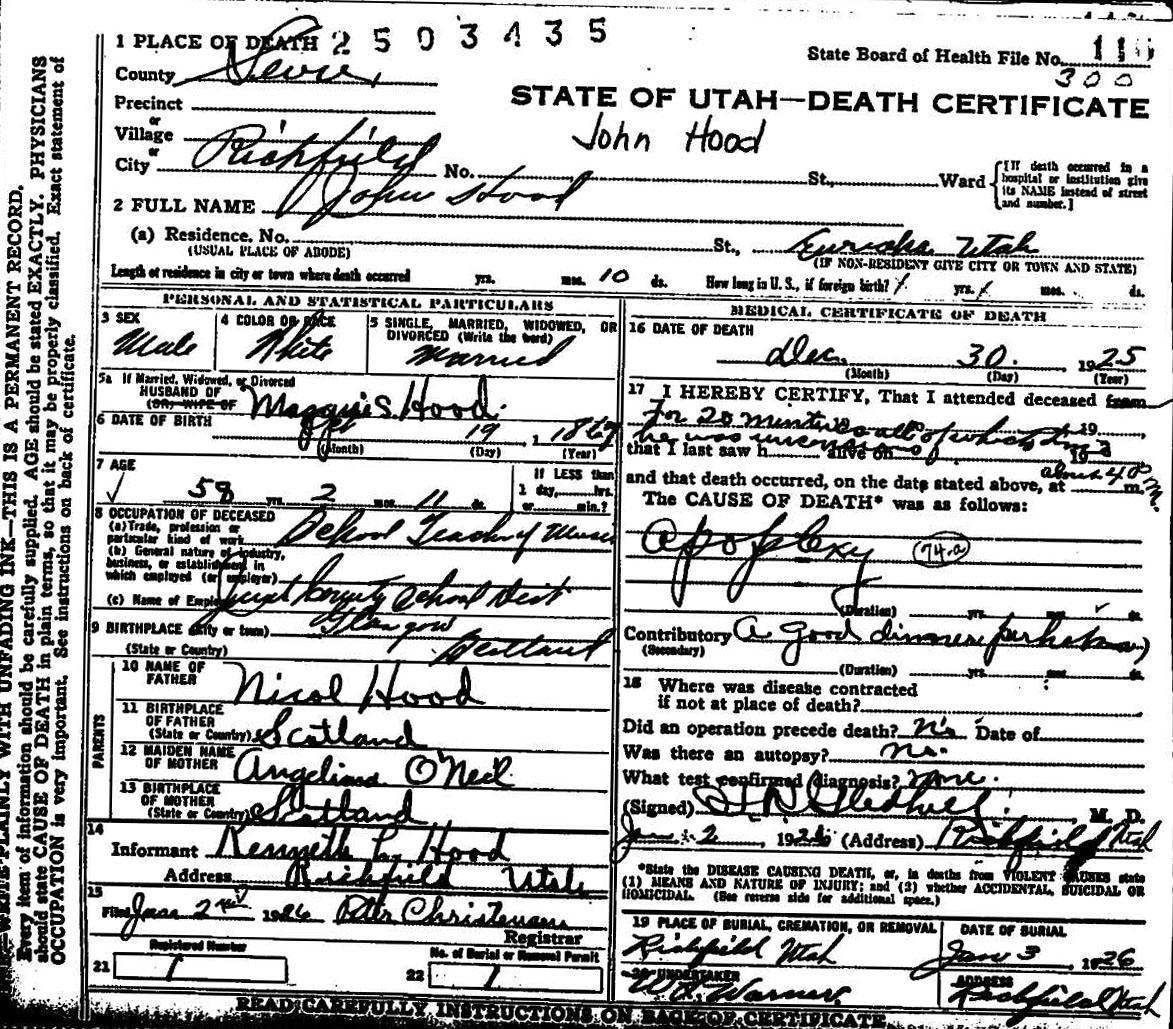 1 PLACE OF DEATH 2503435
State Board of Health File No. 116
300
County Sevier
STATE OF UTAH—DEATH CERTIFICATE
Precinct
or
Village
John Hood
or
City Richfield No. St., Ward
[If death occurred in a hospital or institution give its NAME instead of street and number.]
2 FULL NAME John Hood
(a) Residence. No. St., Eureka Utah
(USUAL PLACE OF ABODE) (IF NON-RESIDENT GIVE CITY OR TOWN AND STATE)
Length of residence in city or town where death occurred yrs. mos. 10 ds. How long in U. S., if foreign birth? yrs. mos. ds.
PERSONAL AND STATISTICAL PARTICULARS
3 SEX
Male
4 COLOR OR RACE
White
5 SINGLE, MARRIED, WIDOWED, OR DIVORCED (Write the word)
Married
5a If Married, Widowed, or Divorced
HUSBAND OF
(OR) WIFE OF
Maggie S. Hood
6 DATE OF BIRTH 19 1867
(Month) (Day) (Year)
7 AGE
58 yrs. 2 mos. 11 ds.
If LESS than
1 day, hrs.
or min.?
8 OCCUPATION OF DECEASED
(a) Trade, profession or
particular kind of work School Teacher of Music
(b) General nature of industry,
business, or establishment in
which employed (or employer)
(c) Name of Employer County School Dist
9 BIRTHPLACE (city or town) Glasgow
(State or Country) Scotland
PARENTS
10 NAME OF
FATHER Nicol Hood
11 BIRTHPLACE
OF FATHER
(State or Country) Scotland
12 MAIDEN NAME
OF MOTHER Angelina O'Neil
13 BIRTHPLACE
OF MOTHER
(State or Country) Scotland
14
Informant Kenneth L. Hood
Address Richfield Utah
15
Filed Jan 2 1926 Peter Christensen
Registrar
Registered Number
21 1
No. of Burial or Removal Permit
22 1
MEDICAL CERTIFICATE OF DEATH
16 DATE OF DEATH
Dec. 30. 1925
(Month) (Day) (Year)
17 I HEREBY CERTIFY, That I attended deceased from
For 20 minutes all of which time 19
he was unconscious
that I last saw h alive on 19
about 4 P M.
and that death occurred, on the date stated above, at m.
The CAUSE OF DEATH* was as follows:
Apoplexy 74-a
(Duration) yrs. mos. ds.
Contributory A good dinner perhaps
(Secondary)
(Duration) yrs. mos. ds.
18 Where was disease contracted
if not at place of death?
Did an operation precede death? No. Date of
Was there an autopsy? no.
What test confirmed diagnosis? none.
(Signed) M. D.
Jan 2, 1926 (Address) Richfield Utah
*State the DISEASE CAUSING DEATH, or, in deaths from VIOLENT CAUSES state
(1) MEANS AND NATURE OF INJURY; and (2) whether ACCIDENTAL, SUICIDAL OR
HOMICIDAL. (See reverse side for additional space.)
19 PLACE OF BURIAL, CREMATION, OR REMOVAL
Richfield Utah
DATE OF BURIAL
Jan 3 1926
20 UNDERTAKER
Warner
ADDRESS
Richfield Utah
READ CAREFULLY INSTRUCTIONS ON BACK OF CERTIFICATE
WRITE PLAINLY WITH UNFADING INK—THIS IS A PERMANENT RECORD.
Every item of information should be carefully supplied. AGE should be stated EXACTLY. PHYSICIANS
should state CAUSE OF DEATH in plain terms, so that it may be properly classified. Exact statement of
OCCUPATION is very important. See instructions on back of certificate.